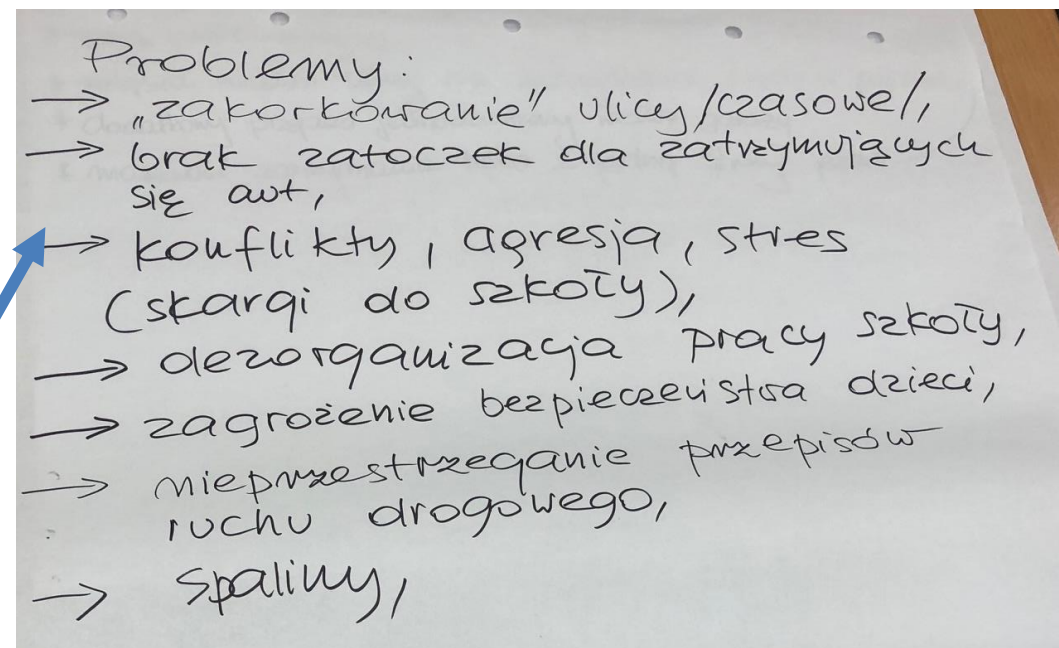 Problemy:
→ „zakorkowanie" ulicy /czasowe/,
→ brak zatoczek dla zatrzymujących
się aut,
→ konflikty, agresja, stres
(skargi do szkoły),
→ dezorganizacja pracy szkoły,
→ zagrożenie bezpieczeństwa dzieci,
→ nieprzestrzeganie przepisów
ruchu drogowego,
→ spaliny,